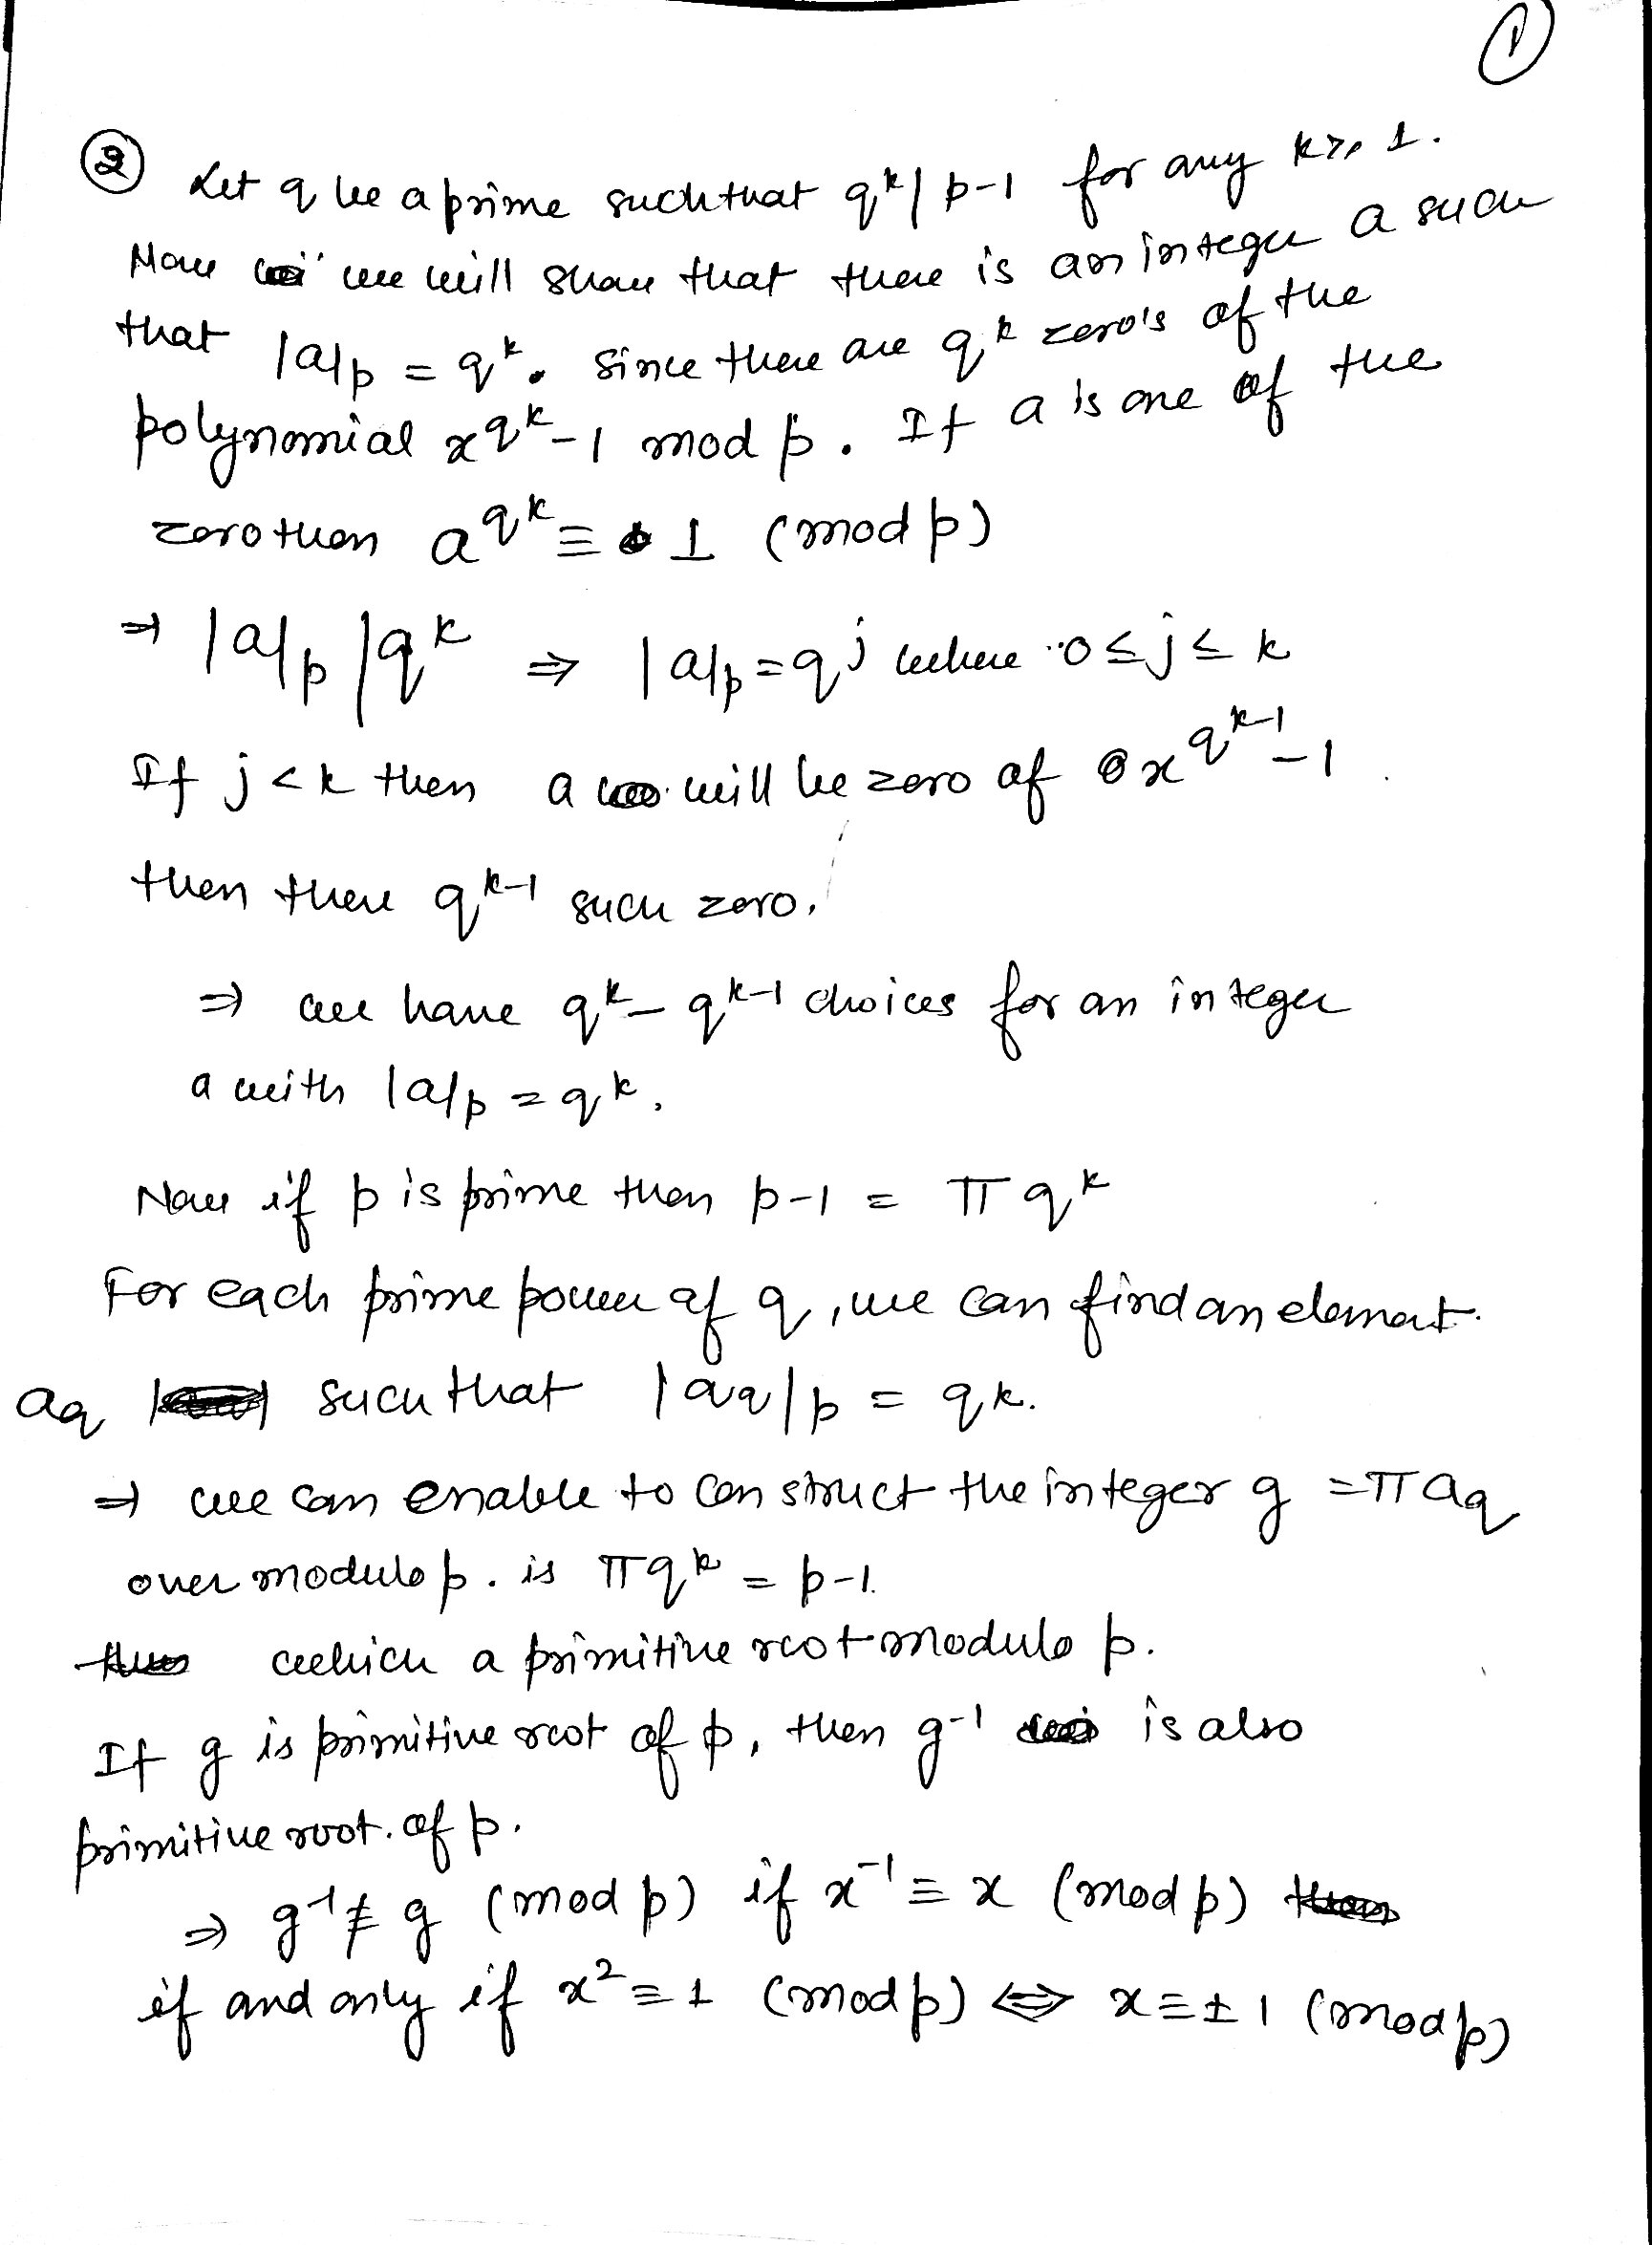 ①
② Let q be a prime such that q^k | p-1 for any k ≥ 1.
Now we will show that there is an integer a such
that |a|p = q^k. Since there are q^k zero's of the
polynomial x^q^k - 1 mod p. If a is one of the
zero then a^q^k ≡ 1 (mod p)
⇒ |a|p | q^k ⇒ |a|p = q^j where 0 ≤ j ≤ k
If j < k then a will be zero of x^q^k-1 - 1
then there q^k-1 such zero.
⇒ we have q^k - q^k-1 choices for an integer
a with |a|p = q^k.
Now if p is prime then p-1 = π q^k
For each prime power of q, we can find an element.
aq such that |aq|p = q^k.
⇒ we can enable to construct the integer g = π aq
over modulo p. is π q^k = p-1.
which a primitive root modulo p.
If g is primitive root of p, then g^-1 is also
primitive root. of p.
⇒ g^-1 ≢ g (mod p) if x^-1 ≡ x (mod p)
if and only if x^2 ≡ 1 (mod p) ⇔ x ≡ ± 1 (mod p)